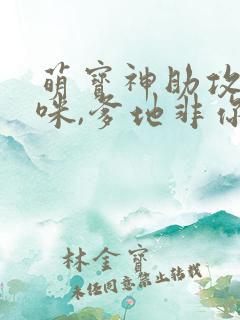 萌寶神助攻
咪,爹地非你
林金寶
未经同意禁止转载